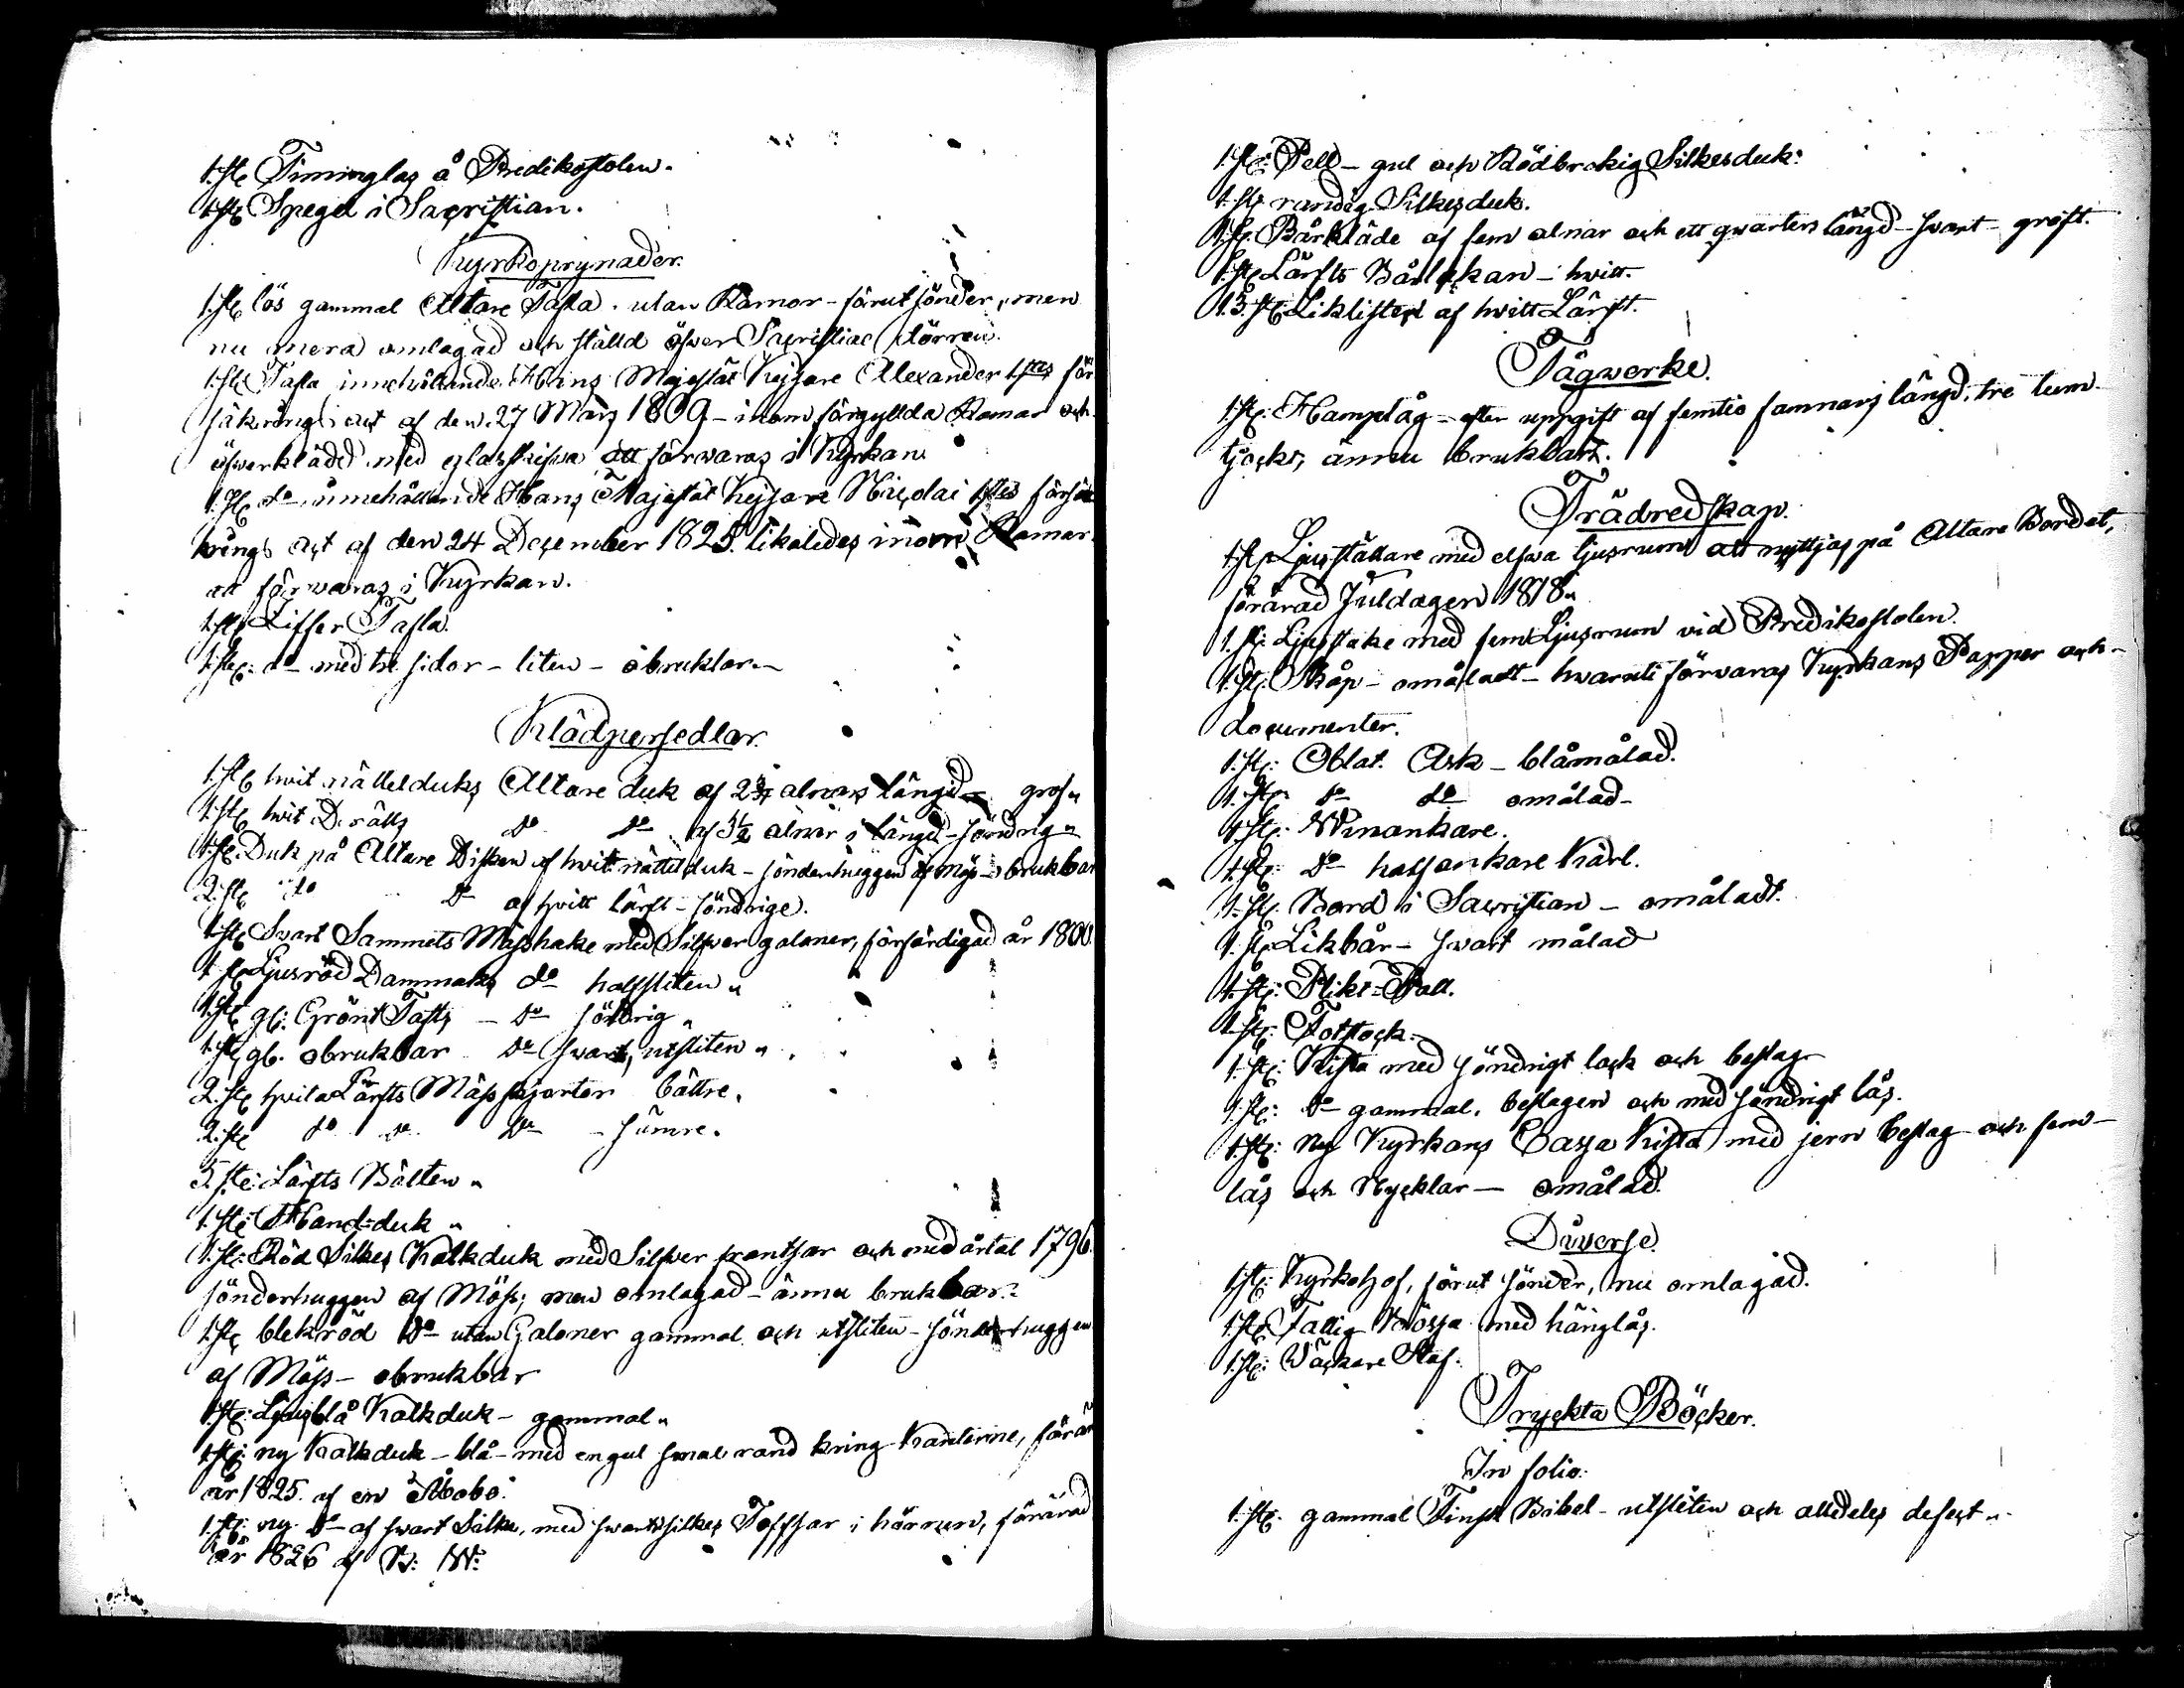 1. st. Timinglas å Predikostolen.
1. st. Spegel i Sacristian.
Kyrkoprynader.
1. st. lös gammal Altare Tafla. utan Ramor - förut sönder, men
nu mera omlagad och ställd öfwer Sacristiae dörren.
1. st. Tafla innehållande Hans Majestät Kejsare Alexander 1stas för
säkrings act af den 27 Mars 1809 - inom förgyllda Ramar och
öfwerklädd med glasskifwa att förwaras i Kyrkan
1. st. do innehållande Hans Majestät Kejsare Nicolai 1stes försäk
rings act af den 24 December 1825. likaledes inom Ramar
att förwaras i Kyrkan.
1. st. Ziffer Tafla.
1. st. do med tre sidor - liten - obrukbar.
Klädpersedlar.
1. st. hwit nättelduks Altare duk af 2 3/4 alnars längd - grof
1. st. hwit Drälls do do af 3 1/2 alnar i längd - söndrig
1. st. Duk på Altare Disken af hwit nättelduk - sönderhuggen af Möss - obrukbar
2. st. do do af hwitt lärft - söndrige.
1. st. Swart Sammets Mässhake med Silfwer galoner, förfärdigad år 1800.
1. st. Ljusröd Dammasks do halfsliten
1. st. gl. Grönt Tafts - do söndrig
1. st. gl. obrukbar do swart, utsliten
2. st. hwita Lärfts Mässskjortor bättre.
2. st. do do do - sämre.
5. st. Lärfts Bälten
1. st. Hand-duk
1. st. Röd Silkes Kalkduk med Silfwer frantsar och med årtal 1796.
sönderhuggen af Möss; men omlagad - ännu brukbar.
1. st. blekröd do utan Galoner gammal och utsliten - sönderhuggen
af Möss - obrukbar
1. st. Ljusblå Kalkduk - gammal
1. st. ny Kalkduk - blå - med en gul smal rand kring Kanterne, förär
år 1825. af en Åbobo.
1. st. ny do af swart Silke, med swart silkes Toffsar i hörnen, förärad
år 1826 af B: W:
1. st. Pell - gul och Rödbrokig Silkesduk.
1. st. randig Silkesduk.
1. st. Bårkläde af fem alnar och ett qwarters längd - swart - groft.
1. st. Lärfts Bårlakan - hwitt.
13. st. Liklister af hwitt Lärft.
Tågwerke.
1. st. Hamptåg - efter uppgift af femtio famnars längd, tre tum
tjockt, ännu brukbart.
Trädredskap.
1. st. Ljusställare med elfwa ljusrum att nyttjas på Altare Bordet,
förärad Juldagen 1818.
1. st. Ljusstake med fem Ljusrum vid Predikostolen.
1. st. Skåp - omåladt - hwaruti förwaras Kyrkans Papper och
documenter.
1. st. Oblat. Ask - blåmålad.
1. st. do do omålad -
1. st. Winankare.
1. st. do halfankare Kärl.
1. st. Bord i Sacristian - omåladt.
1. st. Likbår - swart målad
1. st. Plikt-Pall.
1. st. Fotstock.
1. st. Kista med söndrigt lock och beslag
1. st. do gammal, beslagen och med söndrigt lås.
1. st. ny Kyrkans Cassa Kista med jern beslag och fem
lås och Nycklar - omålad.
Diverse.
1. st. Kyrkohof, förut sönder, nu omlagad.
1. st. Fattig Bössa med hänglås.
1. st. Väckare Staf.
Tryckta Böcker.
In folio.
1. st. gammal Finsk Bibel - utsliten och alldeles defect